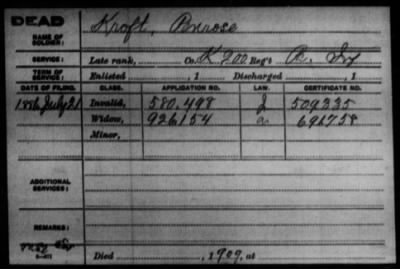 DEAD
NAME OF SOLDIER: Kroft, Penrose
SERVICE: Late rank, Co. K 200 Reg't Pa. Inf
TERM OF SERVICE: Enlisted , 1 Discharged , 1
DATE OF FILING. CLASS. APPLICATION NO. LAW. CERTIFICATE NO.
1886 July 21 Invalid, 580.498 J 509335
Widow, 926154 a 691758
Minor,
ADDITIONAL SERVICES:
REMARKS:
Died , 1909, at